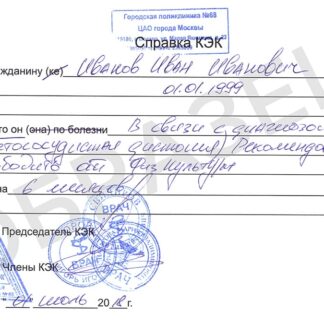 Городская поликлиника №68
ЦАО города Москвы
Справка КЭК
жданину (ке) Иванов Иван Иванович
01.01.1999
го он (она) по болезни В связи с диагнозо
етососудистая дистония) Рекоменд
ободить от физкультур
на 6 месяцев
ВРАЧ
Председатель КЭК
Члены КЭК
ВРАЧ
июль 20 г.
ОБРАЗЕЦ